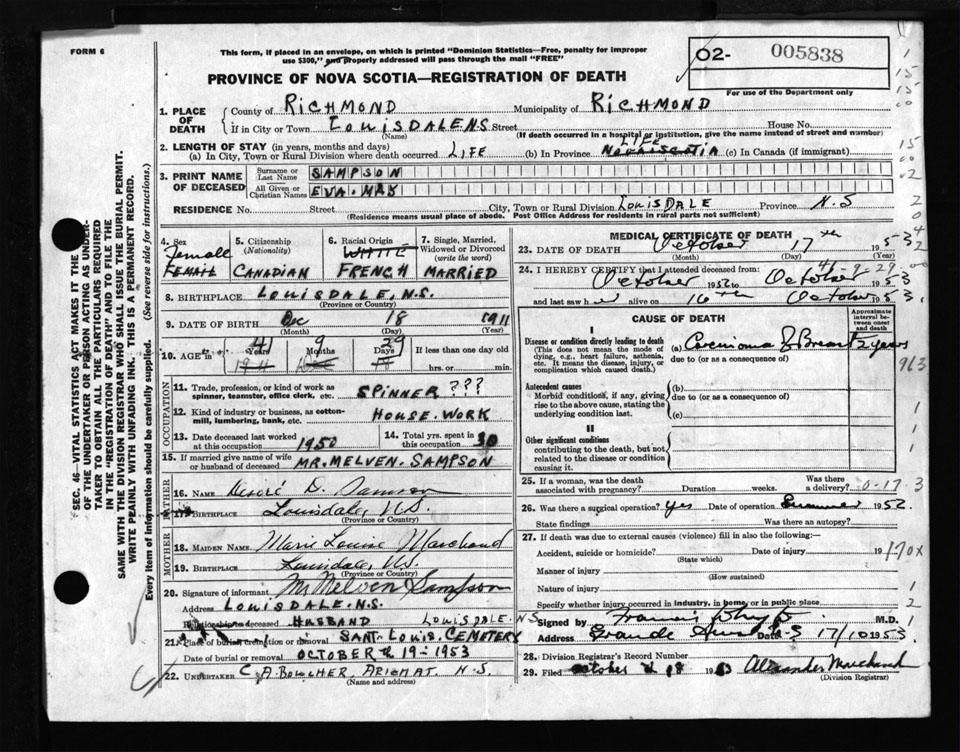 FORM 6
This form, if placed in an envelope, on which is printed "Dominion Statistics—Free, penalty for improper
use $300," and properly addressed will pass through the mail "FREE"
O2- 005838
For use of the Department only
PROVINCE OF NOVA SCOTIA—REGISTRATION OF DEATH
1. PLACE OF DEATH
County of RICHMOND Municipality of RICHMOND
If in City or Town LOUISDALE NS Street House No.
(Name) (If death occurred in a hospital or institution, give the name instead of street and number)
2. LENGTH OF STAY (in years, months and days) LIFE
(a) In City, Town or Rural Division where death occurred LIFE (b) In Province NOVA SCOTIA (c) In Canada (if immigrant)
3. PRINT NAME OF DECEASED
Surname or Last Name SAMPSON
All Given or Christian Names EVA MAY
RESIDENCE No. Street City, Town or Rural Division LOUISDALE Province N.S
(Residence means usual place of abode. Post Office Address for residents in rural parts not sufficient)
4. Sex Female FEMAIL
5. Citizenship (Nationality) CANADIAN
6. Racial Origin WHITE FRENCH
7. Single, Married, Widowed or Divorced (write the word) MARRIED
8. BIRTHPLACE LOUISDALE, N.S.
(Province or Country)
9. DATE OF BIRTH Dec 18 1911
(Month) (Day) (Year)
10. AGE in 41 Years 9 Months 29 Days If less than one day old
hrs. or min.
OCCUPATION
11. Trade, profession, or kind of work as spinner, teamster, office clerk, etc. SPINNER ???
12. Kind of industry or business, as cotton-mill, lumbering, bank, etc. HOUSE. WORK
13. Date deceased last worked at this occupation 1950
14. Total yrs. spent in this occupation 30
15. If married give name of wife or husband of deceased MR. MELVEN. SAMPSON
FATHER
16. NAME Desiré D. Samson
17. BIRTHPLACE Louisdale, N.S.
(Province or Country)
MOTHER
18. MAIDEN NAME Marie Louise Marchand
19. BIRTHPLACE Louisdale, N.S.
(Province or Country)
20. Signature of informant Mr Melven Sampson
Address LOUISDALE. N.S.
Relationship to deceased HUSBAND LOUISDALE. N.S
21. Place of burial cremation or removal SANT. LOUIS. CEMETERY
Date of burial or removal OCTOBER th 19-1953
22. UNDERTAKER C. A. BOUCHER, ARICHAT. N.S.
(Name and address)
MEDICAL CERTIFICATE OF DEATH
23. DATE OF DEATH October 17th 1953
(Month) (Day)
24. I HEREBY CERTIFY that I attended deceased from: 41-9-29
October 1952 to October 1953
and last saw her alive on 16th October 1953.
CAUSE OF DEATH
Approximate interval between onset and death
I
Disease or condition directly leading to death
(This does not mean the mode of dying, e.g., heart failure, asthenia, etc. It means the disease, injury, or complication which caused death.)
(a) Carcinoma of Breast 2 years
due to (or as a consequence of)
Antecedent causes
Morbid conditions, if any, giving rise to the above cause, stating the underlying condition last.
(b)
due to (or as a consequence of)
(c)
II
Other significant conditions
contributing to the death, but not related to the disease or condition causing it.
25. If a woman, was the death associated with pregnancy? Duration weeks. Was there a delivery? 0-17
26. Was there a surgical operation? yes Date of operation Summer 1952
State findings Was there an autopsy?
27. If death was due to external causes (violence) fill in also the following:—
Accident, suicide or homicide? Date of injury 19
(State which)
170x
Manner of injury
(How sustained)
Nature of injury
Specify whether injury occurred in industry, in home, or in public place
Signed by Francis M.D.
Address Grande Date 17/10 1953
28. Division Registrar's Record Number
29. Filed October 18 1953 Alexander Marchand
(Division Registrar)
SEC. 46—VITAL STATISTICS ACT MAKES IT THE DUTY
OF THE UNDERTAKER OR PERSON ACTING AS UNDER-
TAKER TO OBTAIN ALL THE PARTICULARS REQUIRED
IN THE "REGISTRATION OF DEATH" AND TO FILE THE
SAME WITH THE DIVISION REGISTRAR WHO SHALL ISSUE THE BURIAL PERMIT.
WRITE PLAINLY WITH UNFADING INK. THIS IS A PERMANENT RECORD.
Every item of information should be carefully supplied. (See reverse side for instructions.)